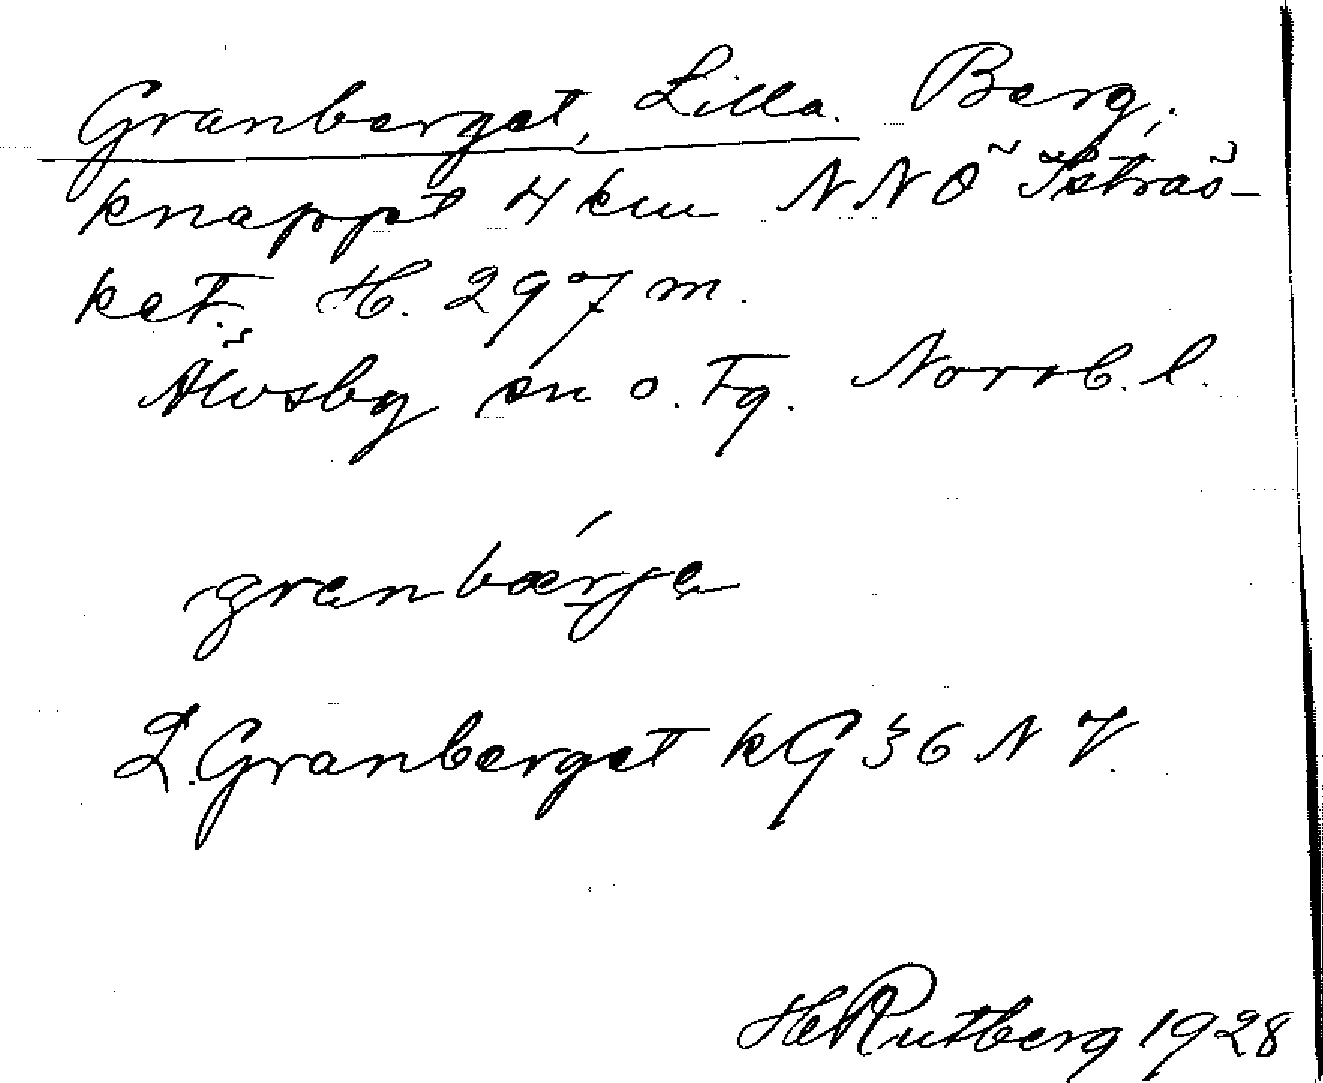 Granberget, Lilla. Berg,
knappt 4 km NNÖ Isträs-
ket. H. 297 m.
Älvsby sn o. Fg. Norrb. l.
granbærje
L. Granberget kG 36 NV.
H Rutberg 1928